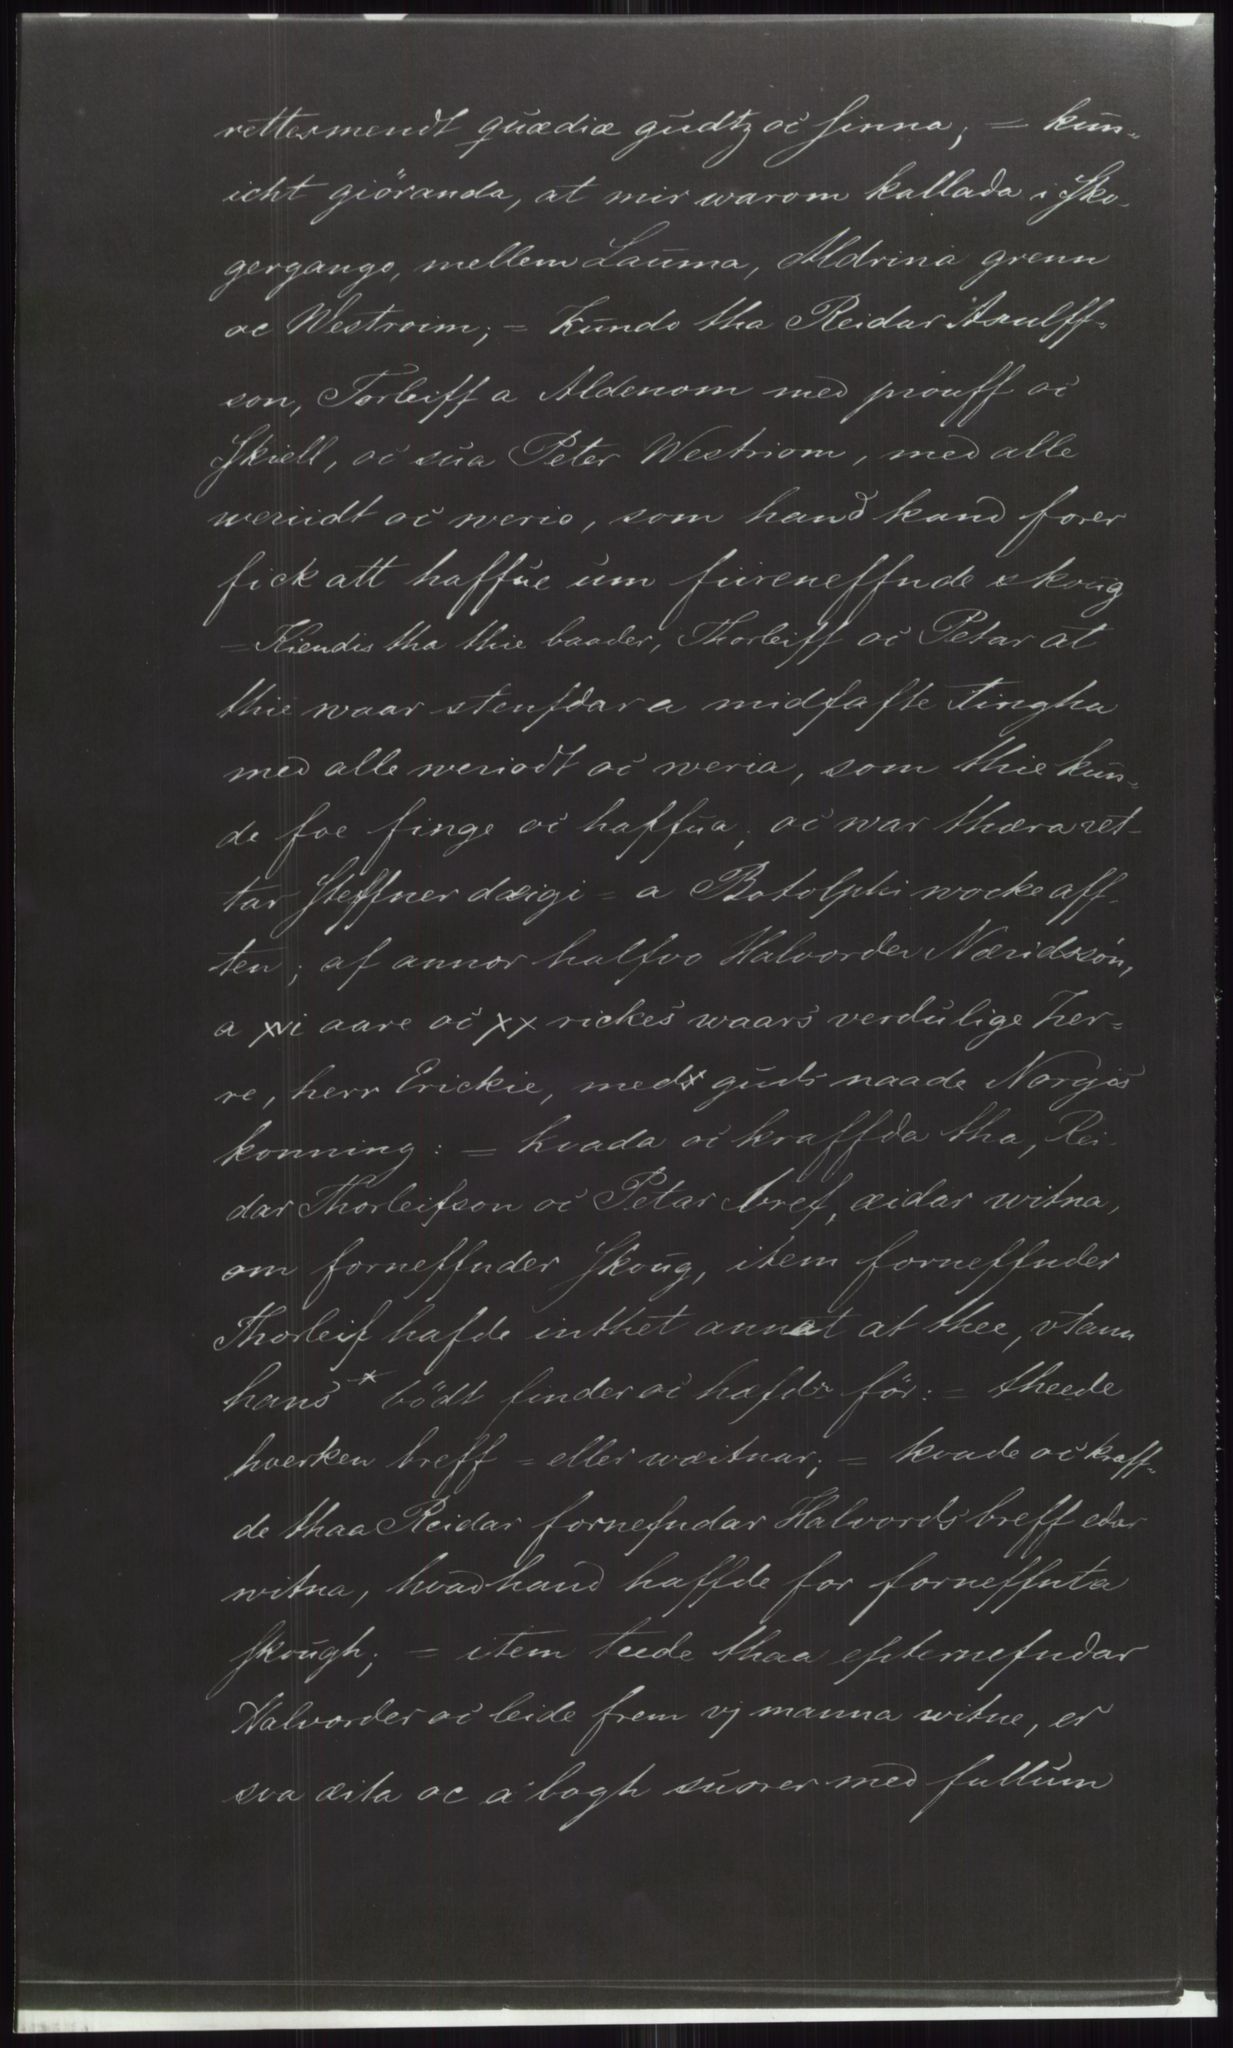 rettermendt quædiæ gudtz oc sinna; = kun-
icht giöranda, at mir warom kallada i Sko-
gergango, mellem Lauma, Aldrina grenn
oc Westroim; = Kundo tha Reidar Asulff-
son, Torleiff a Aldenom med prouff oc
Skiell, oc sua Peter Westriom, med alle
weriidt oc werio, som hand kand forer
fick att haffue um fiireneffnde skoug
= Kiendis tha thie baader, Thorleiff oc Petar at
thie waar stenfdar a midfaste Tingha
med alle weriodt oc weria, som thie kun-
de foe finge oc haffua, oc war thæra ret-
tar Steffner dæigi = a Botolphi wocke aff-
ten; af annor halfvo Halvorder Næridssön,
a xvi aare oc xx rickes waars verdulige her-
re, herr Erickie, medx guds naade Norgis
konning: = kvada oc kraffda tha, Rei-
dar Thorleifson oc Petar bref, æidar witna,
om forneffnder Skoug, item forneffnder
Thorleif hafde inthet annat at thee, vtann
hans x bödt finder oc hæfdr för: = theede
hverken breff = eller wæitnar; = kvade oc kraff-
de thaa Reidar fornefndar Halvords breff edar
witna, hvad hand haffde for forneffnta
skough; = item teede thaa efternefndar
Halvorder oc leide frem vj manna witne, er
sva æita oc a bogh suorer med fullum